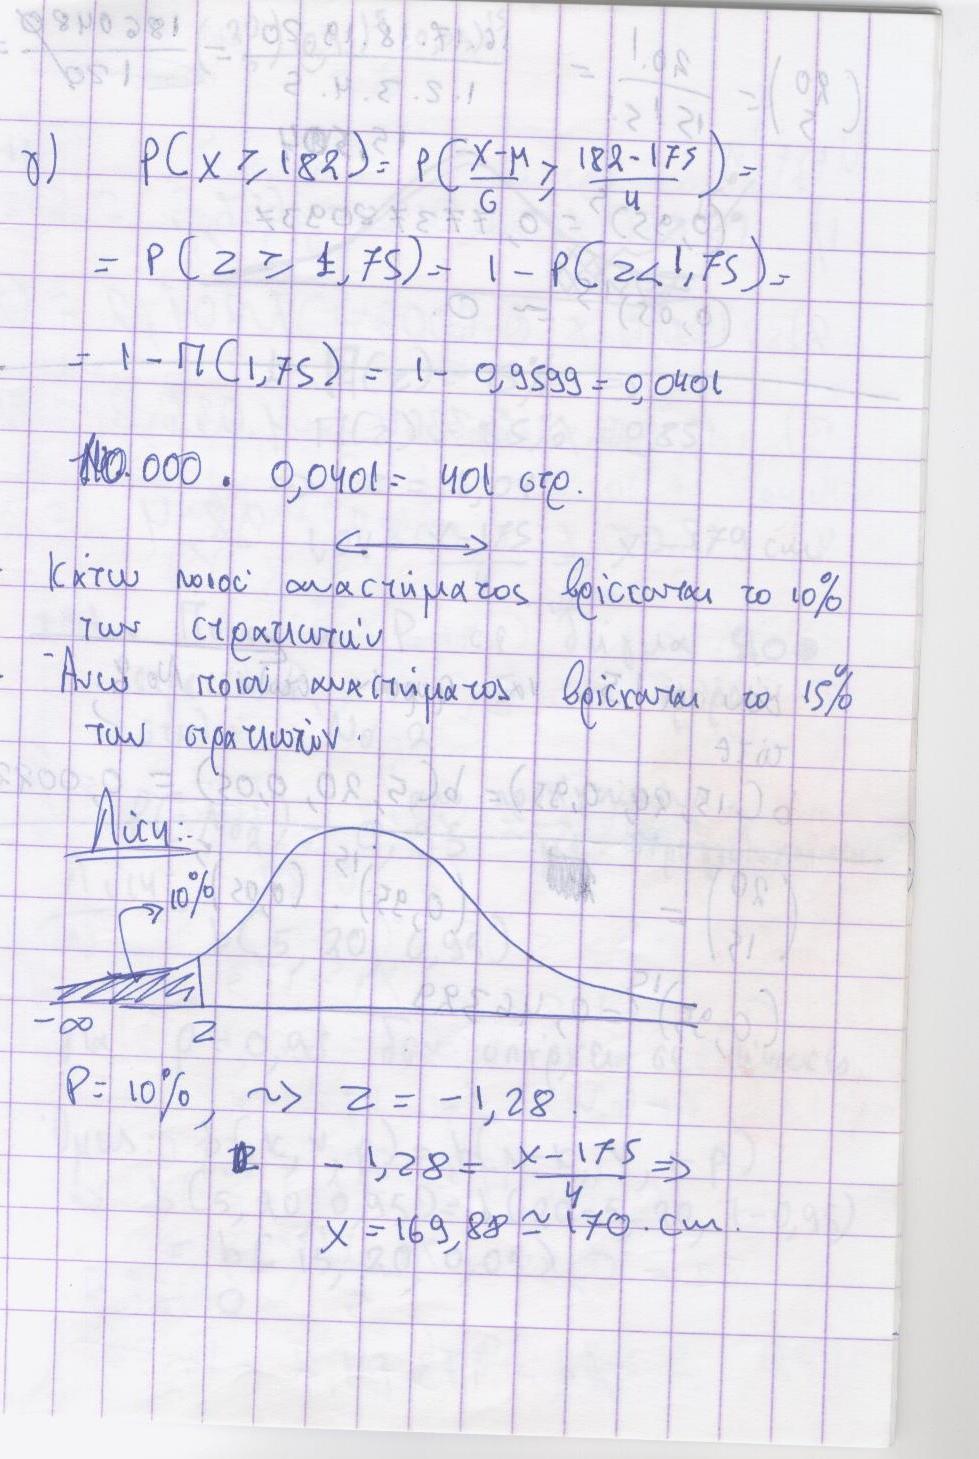 γ) P(X ≥ 182) = P(X-μ/σ ≥ 182-175/4) =
= P(Z ≥ 1,75) = 1 - P(Z < 1,75) =
= 1 - Π(1,75) = 1 - 0,9599 = 0,0401
10.000 . 0,0401 = 401 στρ.
- Κάτω ποιού αναστήματος βρίσκονται το 10%
των στρατιωτών
- Ανω ποιού αναστήματος βρίσκονται το 15%
των στρατιωτών.
Λύση:
10%
-∞ Z
P = 10%, ~> Z = -1,28.
-1,28 = X-175/4 =>
X = 169,88 ≃ 170. cm.